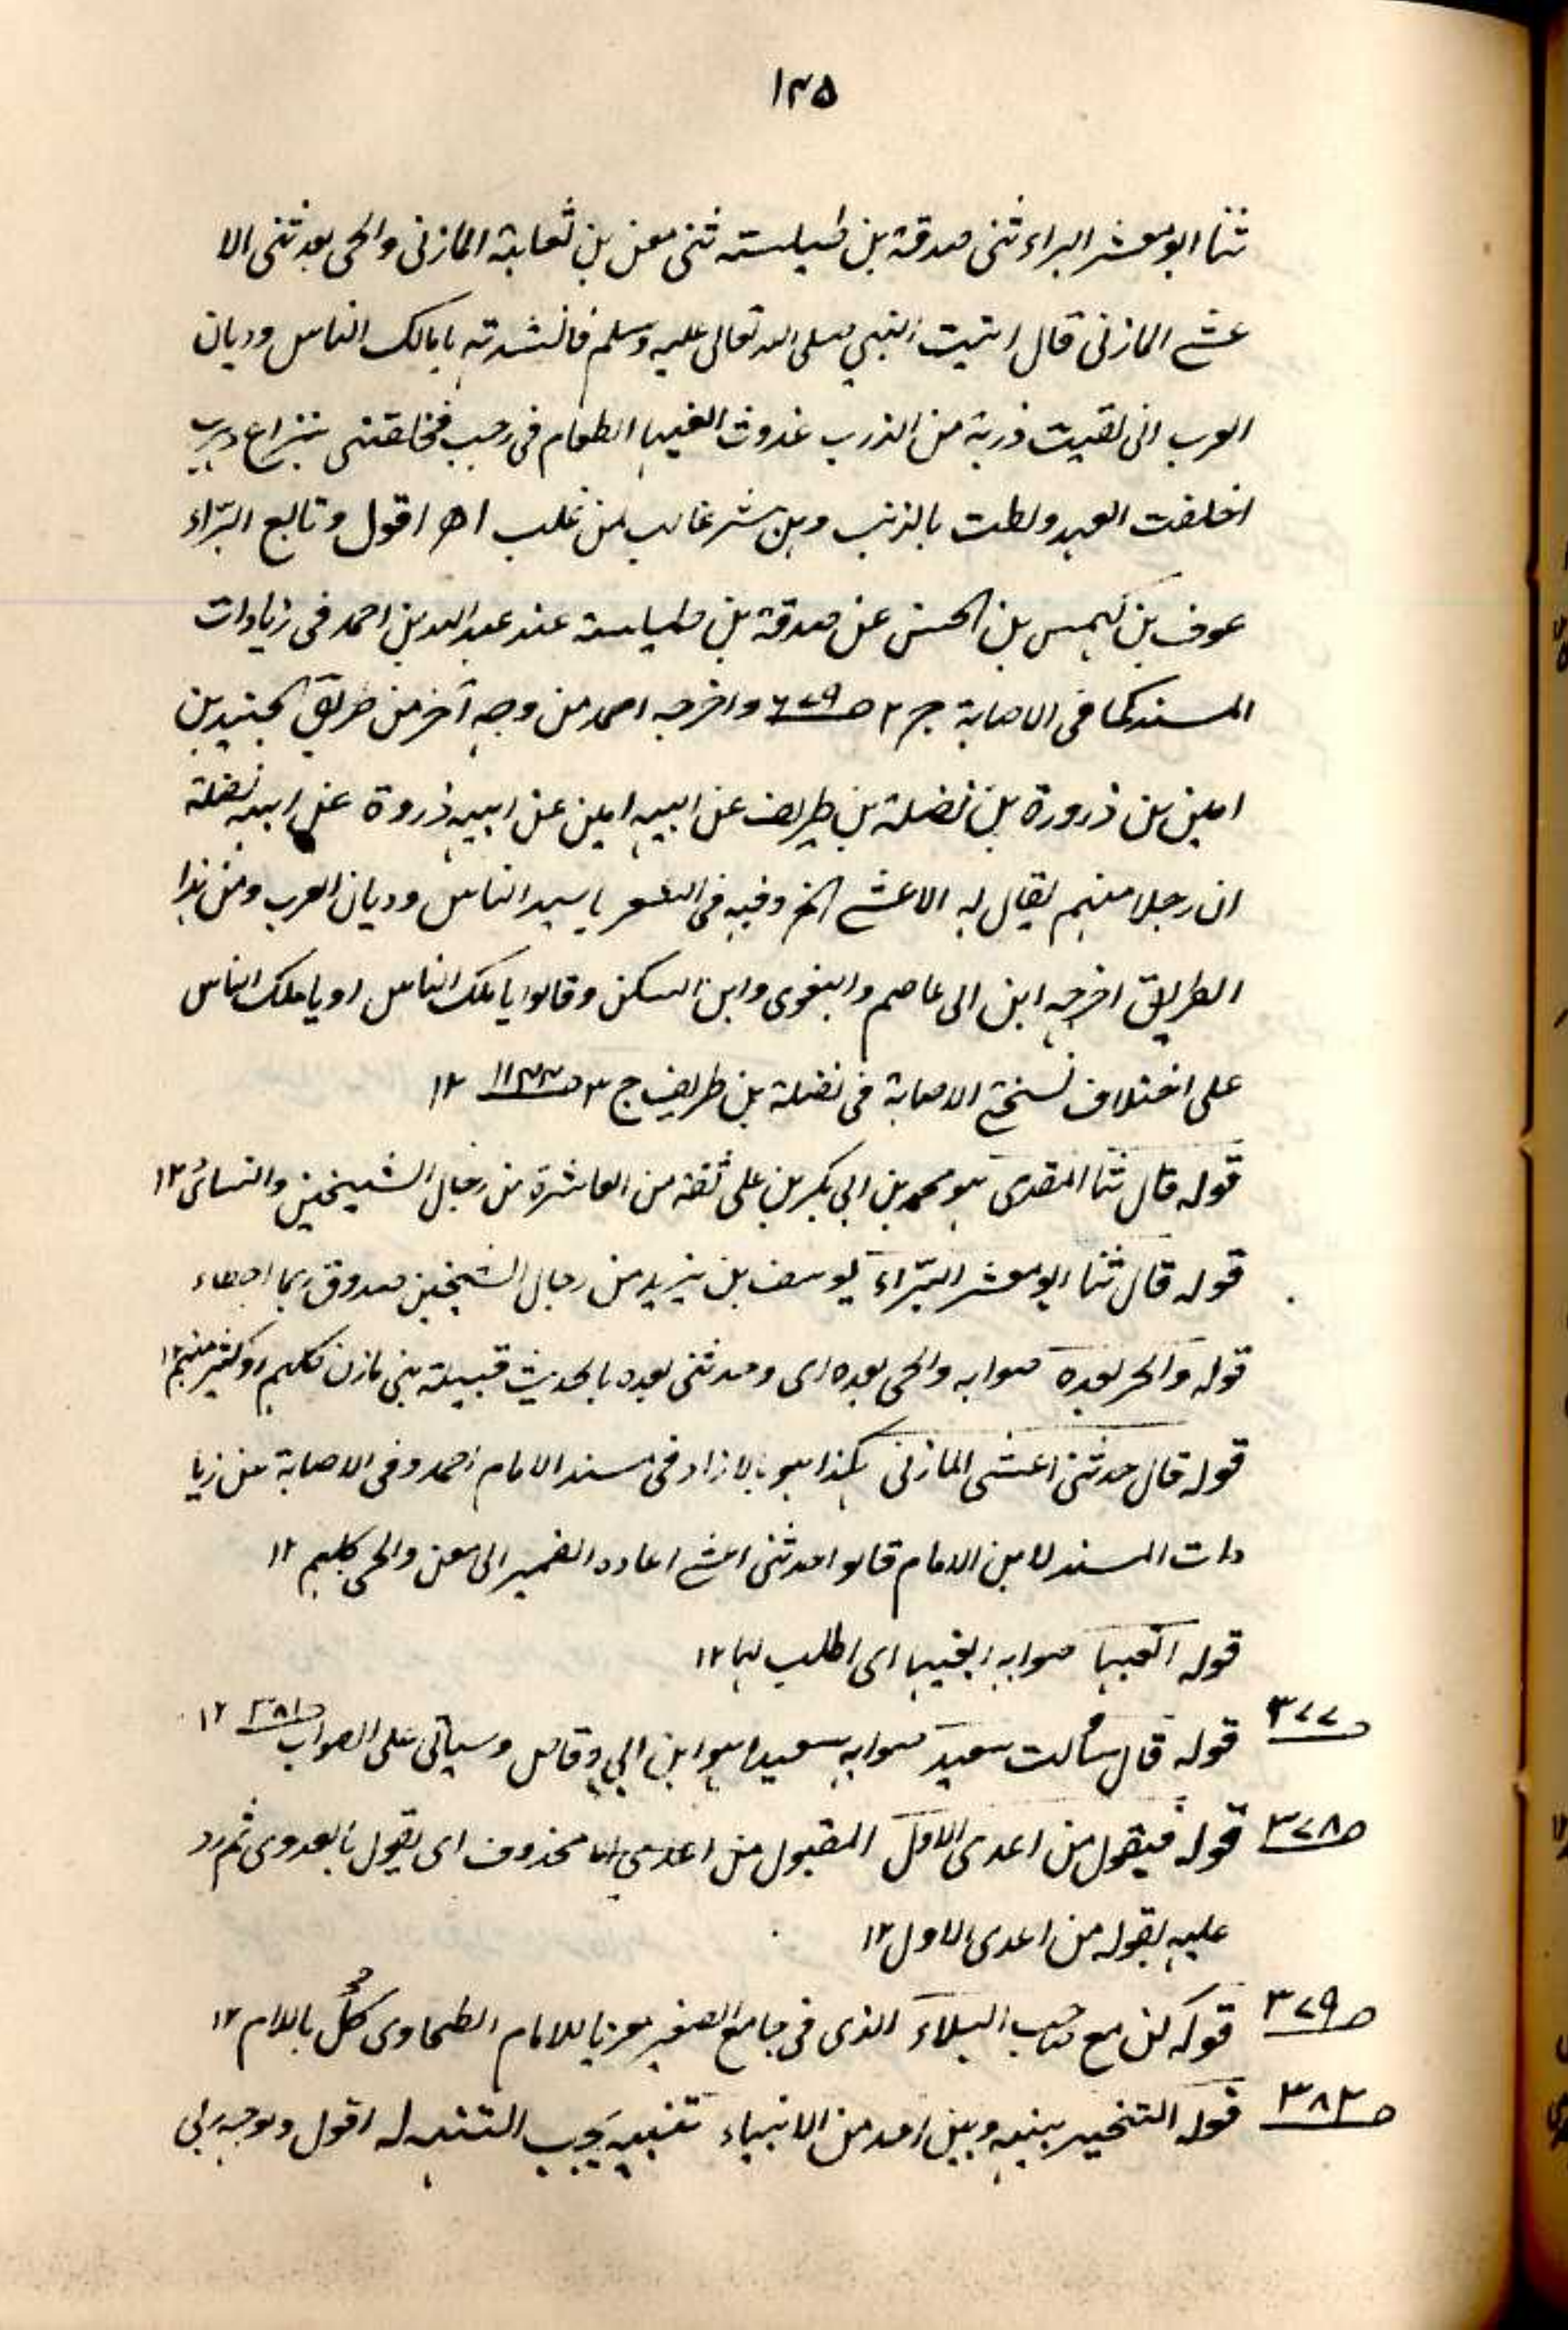 ١٣٥
ثنا ابو معشر البراء ثنى صدقة بن طيلسته ثنى معن بن ثعلبة المازنى والحى بعد ثنى الا
عشے المازنى قال اتيت النبى صلى الله تعالى عليه وسلم فانشدته يا مالك الناس وديان
العرب انى لقيت ذربة من الذرب غدوت ابغيها الطعام فى رجب فخلفتنى بنزاع وحرب
اخلفت العهد ولطت بالذنب وهن شر غالب لمن غلب اھ اقول وتابع البرّاء
عوف بن كهمس بن الحسن عن صدقة بن طيلسة عند عبد الله بن احمد فى زيادات
المسند كما فى الاصابة ج٢ ص٦٧٩ واخرجه احمد من وجه آخر من طريق الجنيد بن
امين بن ذروة بن نضلة بن طريف عن ابيه امين عن ابيه ذروة عن ابيه نضلة
ان رجلا منهم يقال له الاعشے الخ وفيه فى الشعر يا سيد الناس وديان العرب ومن هذا
الطريق اخرجه ابن ابى عاصم والبغوى وابن السكن وقالوا يا ملك الناس او يا ملك الناس
على اختلاف نسختے الاصابة فى نضلة بن طريف ج٣ ص١١٣٣ ١٢
قوله قال ثنا المقدمى هو محمد بن ابى بكر بن على ثقة من العاشرة من رجال الشيخين والنسائى ١٢
قوله قال ثنا ابو معشر البرّاء يوسف بن يزيد من رجال الشيخين صدوق ربما اخطاء
قوله والحر بعده صوابه والحى بعده اى وحدثنى بعده بالحديث قبيلة بنى مازن كلهم او كثير منهم ١٢
قوله قال حدثنى اعشى المازنى هكذا هو بالافراد فى مسند الامام احمد وفى الاصابة عن زيا
دات المسند لابن الامام قالوا حدثنى اعشے اعاده الضمير الى معن والحى كلهم ١٢
قوله اتعبها صوابه ابغيها اى اطلب لها ١٢
ص٣٧٧ قوله قال سألت سعيد صوابه سعيدا هو ابن ابى وقاص وسيأتى على الصواب ص٣٨١ ١٢
ص٣٧٨ قوله فيقول من اعدى الاول المقبول من اعدى محذوف اى يقول بالعدوى ثم رد
عليه بقوله من اعدى الاول ١٢
ص٣٧٩ قوله كن مع صاحب البلاء الذى فى جامع الصغير معزيا للامام الطحاوى كُل باللام ١٢
ص٣٨٣ قوله التخيير بينه وبين احد من الانبياء تنبيه يجب التنبه له اقول ووجه ابى